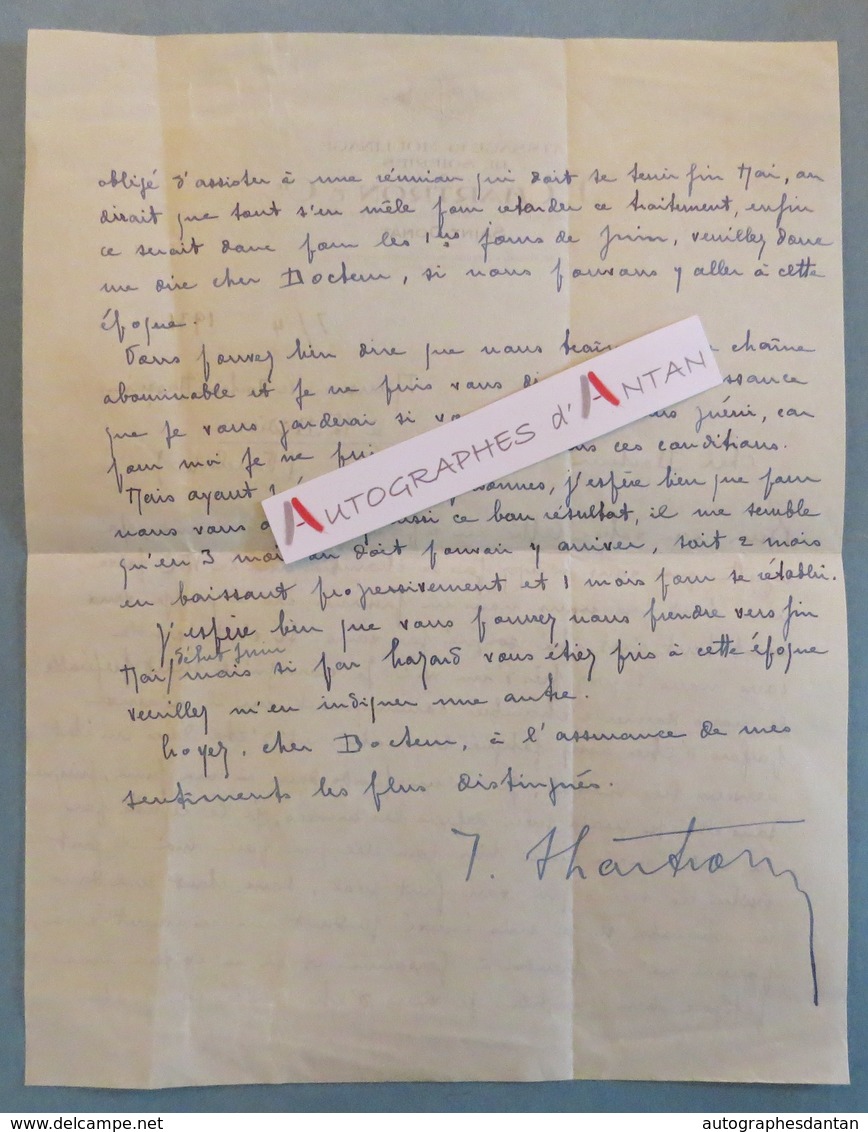 obligé d'assister à une réunion qui doit se tenir fin Mai, on
dirait que tout s'en mêle pour retarder ce traitement, enfin
ce serait donc pour les 1ers jours de Juin, veuillez donc
me dire cher Docteur, si nous pouvons y aller à cette
époque.
Vous pouvez bien dire que nous chaîne
abominable et je ne puis vous
que je vous garderai si guéri, car
pour moi je ne ces conditions.
Mais ayant j'espère bien que pour
nous vous aussi ce bon résultat, il me semble
qu'en 3 mois on doit pouvoir y arriver, soit 2 mois
en baissant progressivement et 1 mois pour se rétablir.
J'espère bien que vous pourrez nous prendre vers fin
début Juin
Mai/mais si par hazard vous étiez pris à cette époque
veuillez m'en indiquer une autre.
Croyez, cher Docteur, à l'assurance de mes
sentiments les plus distingués.
AUTOGRAPHES d'ANTAN
delcampe.net
autographesdantan